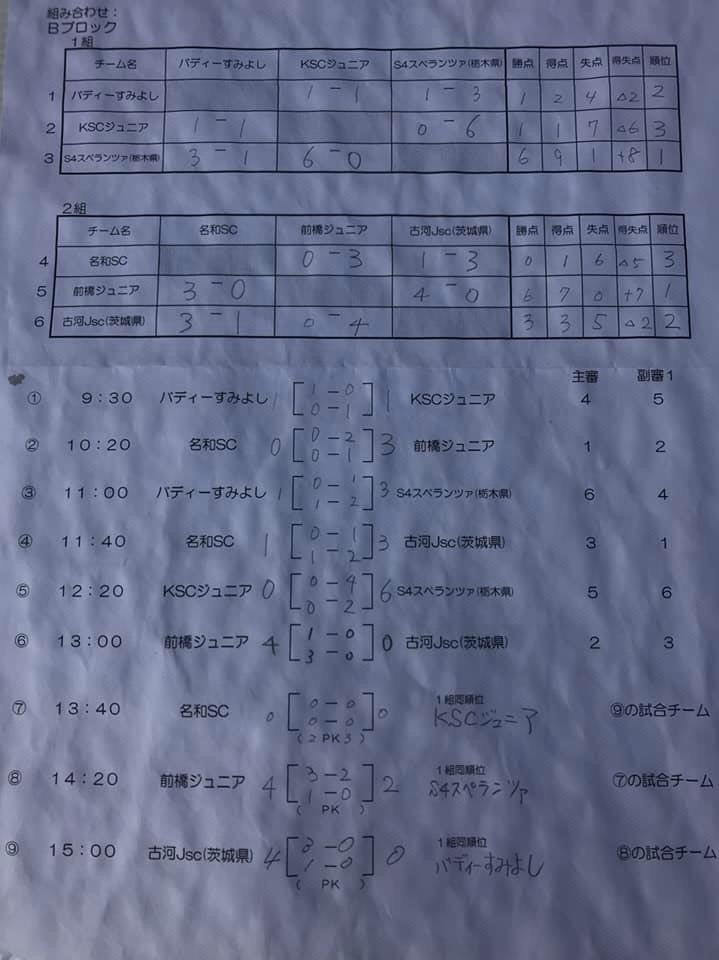 組み合わせ：
Bブロック
1組
チーム名 バディーすみよし KSCジュニア S4スペランツァ(栃木県) 勝点 得点 失点 得失点 順位
1 バディーすみよし 1-1 1-3 1 2 4 △2 2
2 KSCジュニア 1-1 0-6 1 1 7 △6 3
3 S4スペランツァ(栃木県) 3-1 6-0 6 9 1 +8 1
2組
チーム名 名和SC 前橋ジュニア 古河Jsc(茨城県) 勝点 得点 失点 得失点 順位
4 名和SC 0-3 1-3 0 1 6 △5 3
5 前橋ジュニア 3-0 4-0 6 7 0 +7 1
6 古河Jsc(茨城県) 3-1 0-4 3 3 5 △2 2
主審 副審1
① 9：30 バディーすみよし 1 [1-0 0-1] 1 KSCジュニア 4 5
② 10：20 名和SC 0 [0-2 0-1] 3 前橋ジュニア 1 2
③ 11：00 バディーすみよし 1 [0-1 1-2] 3 S4スペランツァ(栃木県) 6 4
④ 11：40 名和SC 1 [0-1 1-2] 3 古河Jsc(茨城県) 3 1
⑤ 12：20 KSCジュニア 0 [0-4 0-2] 6 S4スペランツァ(栃木県) 5 6
⑥ 13：00 前橋ジュニア 4 [1-0 3-0] 0 古河Jsc(茨城県) 2 3
1組同順位
⑦ 13：40 名和SC 0 [0-0 0-0] 0 KSCジュニア ⑨の試合チーム
(2 PK 3)
1組同順位
⑧ 14：20 前橋ジュニア 4 [3-2 1-0] 2 S4スペランツァ ⑦の試合チーム
( PK )
1組同順位
⑨ 15：00 古河Jsc(茨城県) 4 [3-0 1-0] 0 バディーすみよし ⑧の試合チーム
( PK )